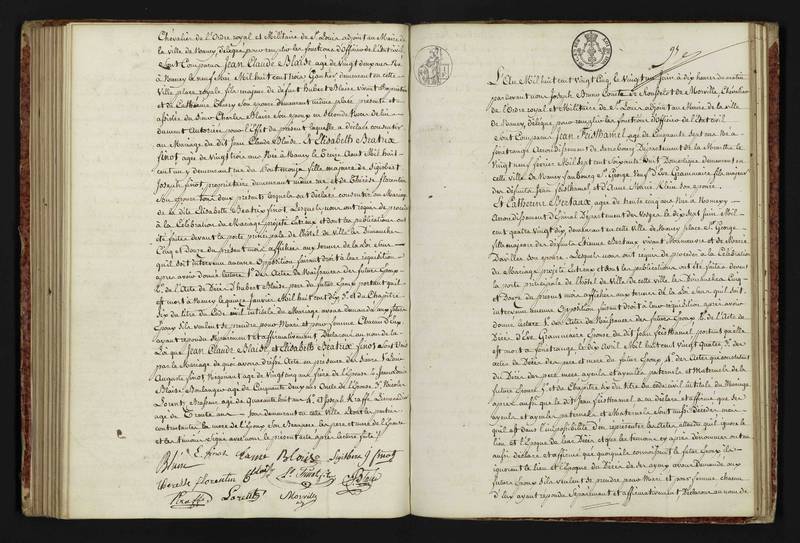 Chevalier de l'Ordre royal et Militaire de St. Louis adjoint au Maire de
la ville de Nancy, délégué pour remplir les fonctions d'Officier de l'Etat civil
sont Comparus Jean Claude Blaise age de Vingt deux ans Né
à Nancy le neuf Mai Mil huit cent trois Gantier demeurant en cette
Ville place royale fils majeur de defunt Hubert Blaise vivant
et de Catherine Thiry son épouse demeurant même place présente et
assistée du Sieur Charles Blaise son époux en Seconde Noces lui
dument Autorisée pour l'Effet du présent laquelle a déclaré consentir
au Mariage du dit Jean Claude Blaise. Et Elisabeth Beatrix
finot age de Vingt trois ans Née à Nancy le Treize Aout Mil huit
cent un y demeurant rue du Pont mouja fille majeure de Sigisbert
Joseph finot propriétaire demeurant même rue et de Thérèse florentin
Son épouse tous deux présents lesquels ont déclaré consentir au Mariage
de la dite Elisabeth Beatrix finot, Lesquels nous ont requis de procéder
à la Célébration du Mariage projetté entreux et dont les publications ont
été faites devant la porte principale de l'hôtel de Ville les Dimanches
Cinq et Douze du présent mois affichées aux termes de la Loi sans
qu'il soit intervenu aucune Opposition faisant droit à leur réquisition
après avoir donné lecture 1° des Actes de Naissances des futurs Epoux
2° de l'Acte de Décès d'hubert Blaise père du futur Epoux portant qu'il
est mort à Nancy le quinze janvier Mil huit cent dix 3° et du Chapitre
Six du titre du Code civil intitulé du Mariage avons demandé aux futurs
Epoux s'ils veulent se prendre pour Mari et pour femme. Chacun d'Eux
ayant répondu séparément et affirmativement Déclarons au nom de la
Loi que Jean Claude Blaise, et Elisabeth Beatrix finot Sont Unis
par le Mariage de quoi avons dressé Acte en présence des Sieurs
Auguste finot Négociant age de Vingt cinq ans frère de l'épouse
Blaise Boulanger age de Cinquante deux ans Oncle de l'Epoux 3° Nicolas
Lorentz Brasseur age de quarante huit ans 4° et Joseph Kraffe
age de Trente ans tous demeurant en cette Ville
et les témoins signé avec nous le présent acte après lecture faite
Blaise E. finot Came Blaise Sigisbert J finot
Therese florentin
Kraffe Lorentz Morville
95
L'An Mil huit cent Vingt Cinq, le Vingt un Juin à dix heures du matin
par devant nous Joseph Bruno Comte de Morville, Chevalier
de l'Ordre royal et Militaire de St. Louis adjoint au Maire de la ville
de Nancy, délégué pour remplir les fonctions d'Officier de l'Etat civil
Sont Comparus Jean feisthamel age de Cinquante Sept ans Né à
fénétrange Arrondissement de Sarrebourg Département de la Meurthe le
Vingt neuf février Mil Sept cent Soixante huit Domestique demeurant en
cette Ville de Nancy faubourg St. George Veuf d'Eve Grammaire fils majeur
des défunts Jean feisthamel et d'Anne Marie Klein son épouse.
Et Catherine Bertaux age de trente cinq ans Née à Nomexy
Arrondissement d'Epinal Département des Vosges le dix Sept Juin Mil
Sept cent quatre Vingt dix demeurant en cette ville de Nancy place St. George
fille majeure des défunts Etienne Bertaux vivant Manoeuvre et de Marie
Daville son épouse. Lesquels nous ont requis de procéder à la Célébration
du Mariage projetté Entreux et dont les publications ont été faites devant
la porte principale de l'hôtel de Ville de cette ville les Dimanches Cinq
et Douze du présent mois affichées aux termes de la Loi sans qu'il soit
intervenu aucune Opposition faisant droit à leur réquisition après avoir
donné lecture 1° des Actes de Naissances des futurs Epoux 2° de l'Acte de
Décès d'Eve Grammaire Epouse du dit Jean feisthamel portant qu'elle
est morte à fénétrange le dix Avril Mil huit cent Vingt quatre 3° des
actes de Décès des père et mère du futur Epoux 4° des Actes qui constatent
du Décès des père mère ayeuls et ayeules paternels et Maternels de la
future Epouse 5° et du Chapitre Six du titre du code civil intitulé du Mariage
après aussi que le dit Jean feisthamel a eu déclaré et affirmé que ses
ayeuls et ayeules paternels et Maternels sont aussi décédés mais
qu'il est dans l'impossibilité d'en représenter les Actes attendu qu'il ignore le
lieu et l'Epoque de leur Décès et que les témoins cy après dénommés ont eu
aussi déclaré et affirmé que quoiqu'ils connoissent le futur Epoux ils
ignorent le lieu et l'Epoque du Décès de ses ayeux avons Demandé aux
futurs Epoux s'ils veulent se prendre pour Mari et pour femme chacun
d'Eux ayant répondu séparément et affirmativement Déclarons au nom de